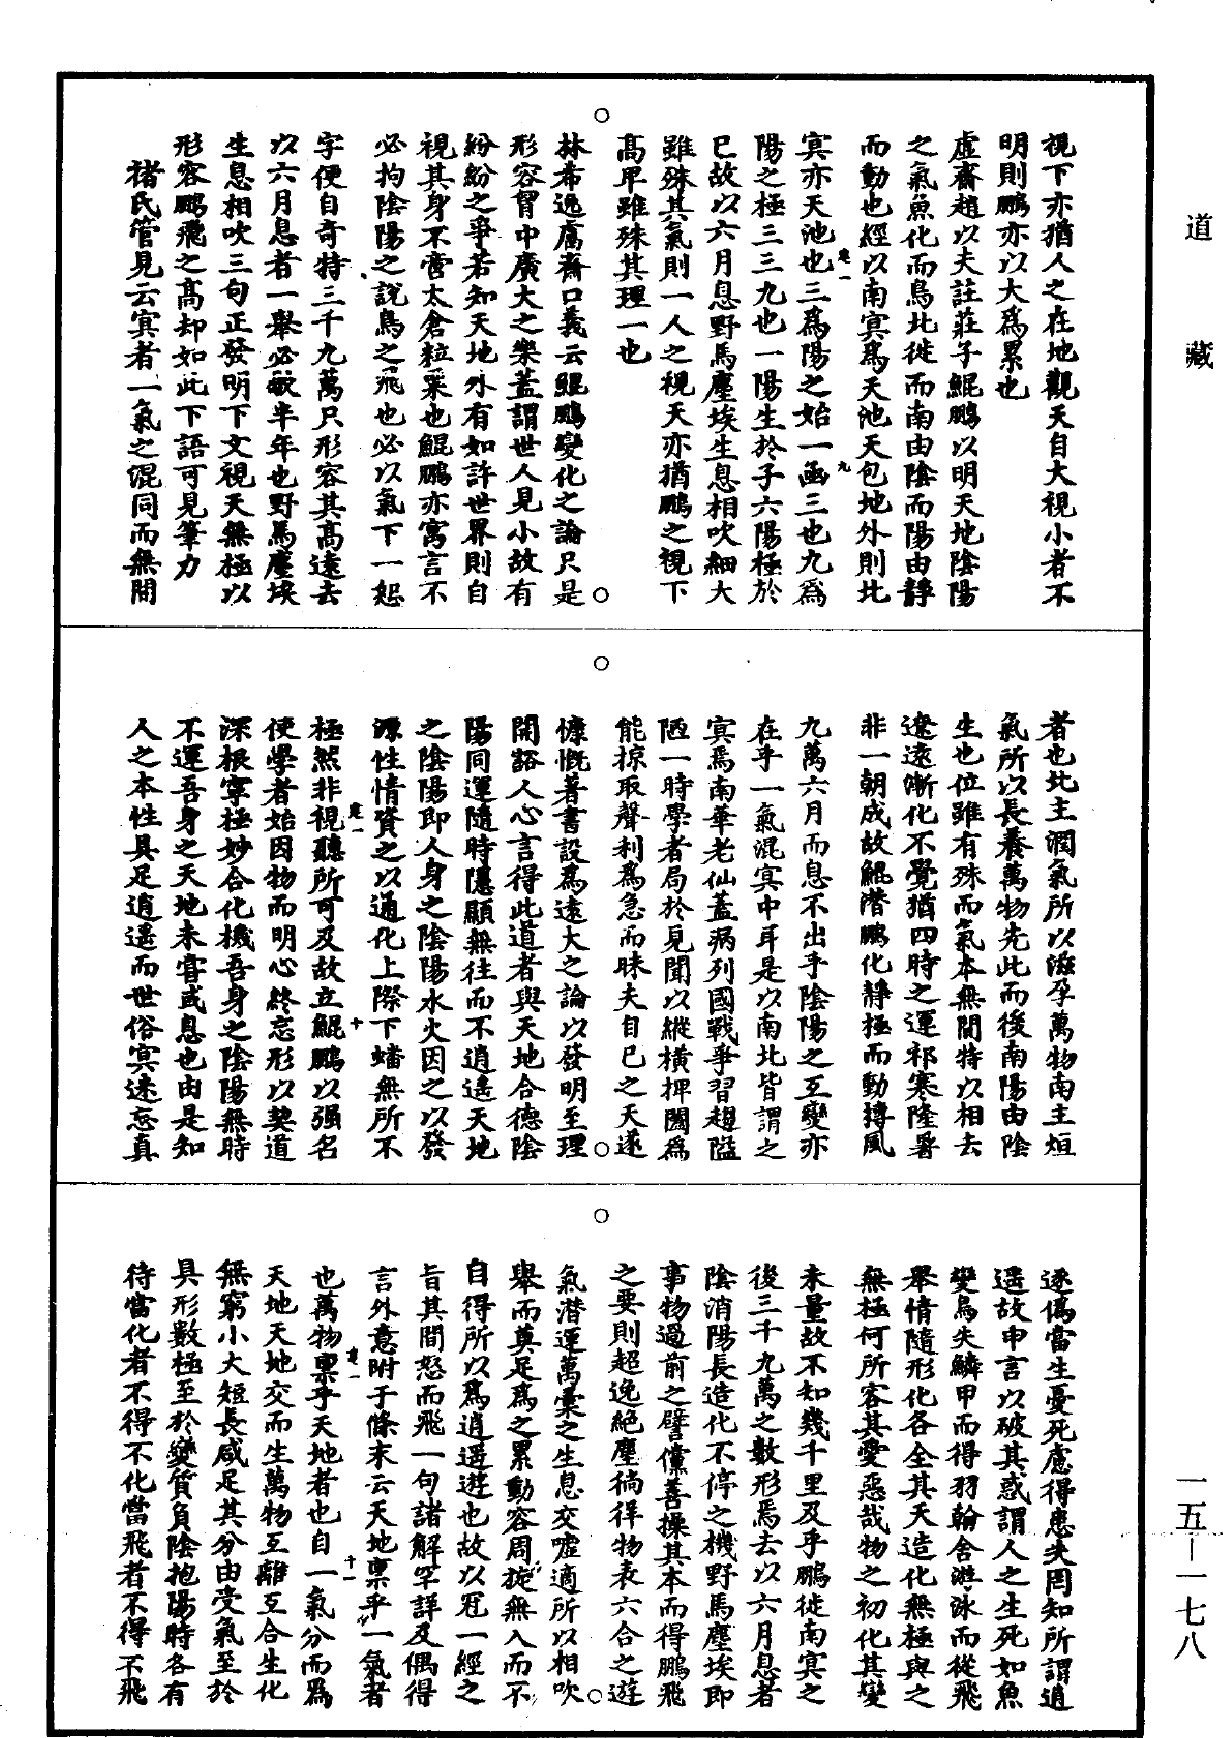 道藏
視下亦猶人之在地觀天自大視小者不
明則鵬亦以大為累也
虛齋趙以夫註莊子鯤鵬以明天地陰陽
之氣魚化而鳥北徙而南由陰而陽由靜
而動也經以南冥為天池天包地外則北
冥亦天池也三為陽之始一函三也九為
陽之極三三九也一陽生於子六陽極於
巳故以六月息野馬塵埃生息相吹細大
雖殊其氣則一人之視天亦猶鵬之視下
高卑雖殊其理一也
林希逸鬳齋口義云鯤鵬變化之論只是
形容胷中廣大之樂蓋謂世人見小故有
紛紛之爭若知天地外有如許世界則自
視其身不啻太倉粒粟也鯤鵬亦寓言不
必拘陰陽之說鳥之飛也必以氣下一怒
字便自奇特三千九萬只形容其高遠去
以六月息者一舉必歇半年也野馬塵埃
生息相吹三句正發明下文視天無極以
形容鵬飛之高却如此下語可見筆力
褚氏管見云冥者一氣之混同而無間
者也北主潤氣所以滋孕萬物南主烜
氣所以長養萬物先北而後南陽由陰
生也位雖有殊而氣本無間特以相去
遼遠漸化不覺猶四時之運祁寒隆暑
非一朝成故鯤潛鵬化靜極而動摶風
九萬六月而息不出乎陰陽之互變亦
在乎一氣混冥中耳是以南北皆謂之
冥焉南華老仙蓋病列國戰爭習趨隘
陋一時學者局於見聞以縱橫捭闔為
能掠取聲利為急而昧夫自己之天遂
慷慨著書設為遠大之論以發明至理
開豁人心言得此道者與天地合德陰
陽同運隨時隱顯無往而不逍遙天地
之陰陽即人身之陰陽水火因之以發
源性情資之以通化上際下蟠無所不
極然非視聽所可及故立鯤鵬以強名
使學者始因物而明心終忘形以契道
深根寧極妙合化機吾身之陰陽無時
不運吾身之天地未嘗或息也由是知
人之本性具足逍遙而世俗冥迷忘真
逐僞當生憂死慮得患失罔知所謂逍
遙故申言以破其惑謂人之生死如魚
變鳥失鱗甲而得羽翰舍游泳而從飛
舉情隨形化各全其天造化無極與之
無極何所容其愛惡哉物之初化其變
未量故不知幾千里及乎鵬徙南冥之
後三千九萬之數形焉去以六月息者
陰消陽長造化不停之機野馬塵埃即
事物過前之譬儻善操其本而得鵬飛
之要則超逸絕塵徜徉物表六合之遊
氣潛運萬彙之生息交噓適所以相吹
舉而莫足為之累動容周旋無入而不
自得所以為逍遙遊也故以冠一經之
旨其間怒而飛一句諸解罕詳及偶得
言外意附于條末云天地稟乎一氣者
也萬物稟乎天地者也自一氣分而為
天地天地交而生萬物互離互合生化
無窮小大短長咸足其分由受氣至於
具形數極至於變質負陰抱陽時各有
待當化者不得不化當飛者不得不飛
壹一
九
壹一
十
壹一
十一
一五—一七八